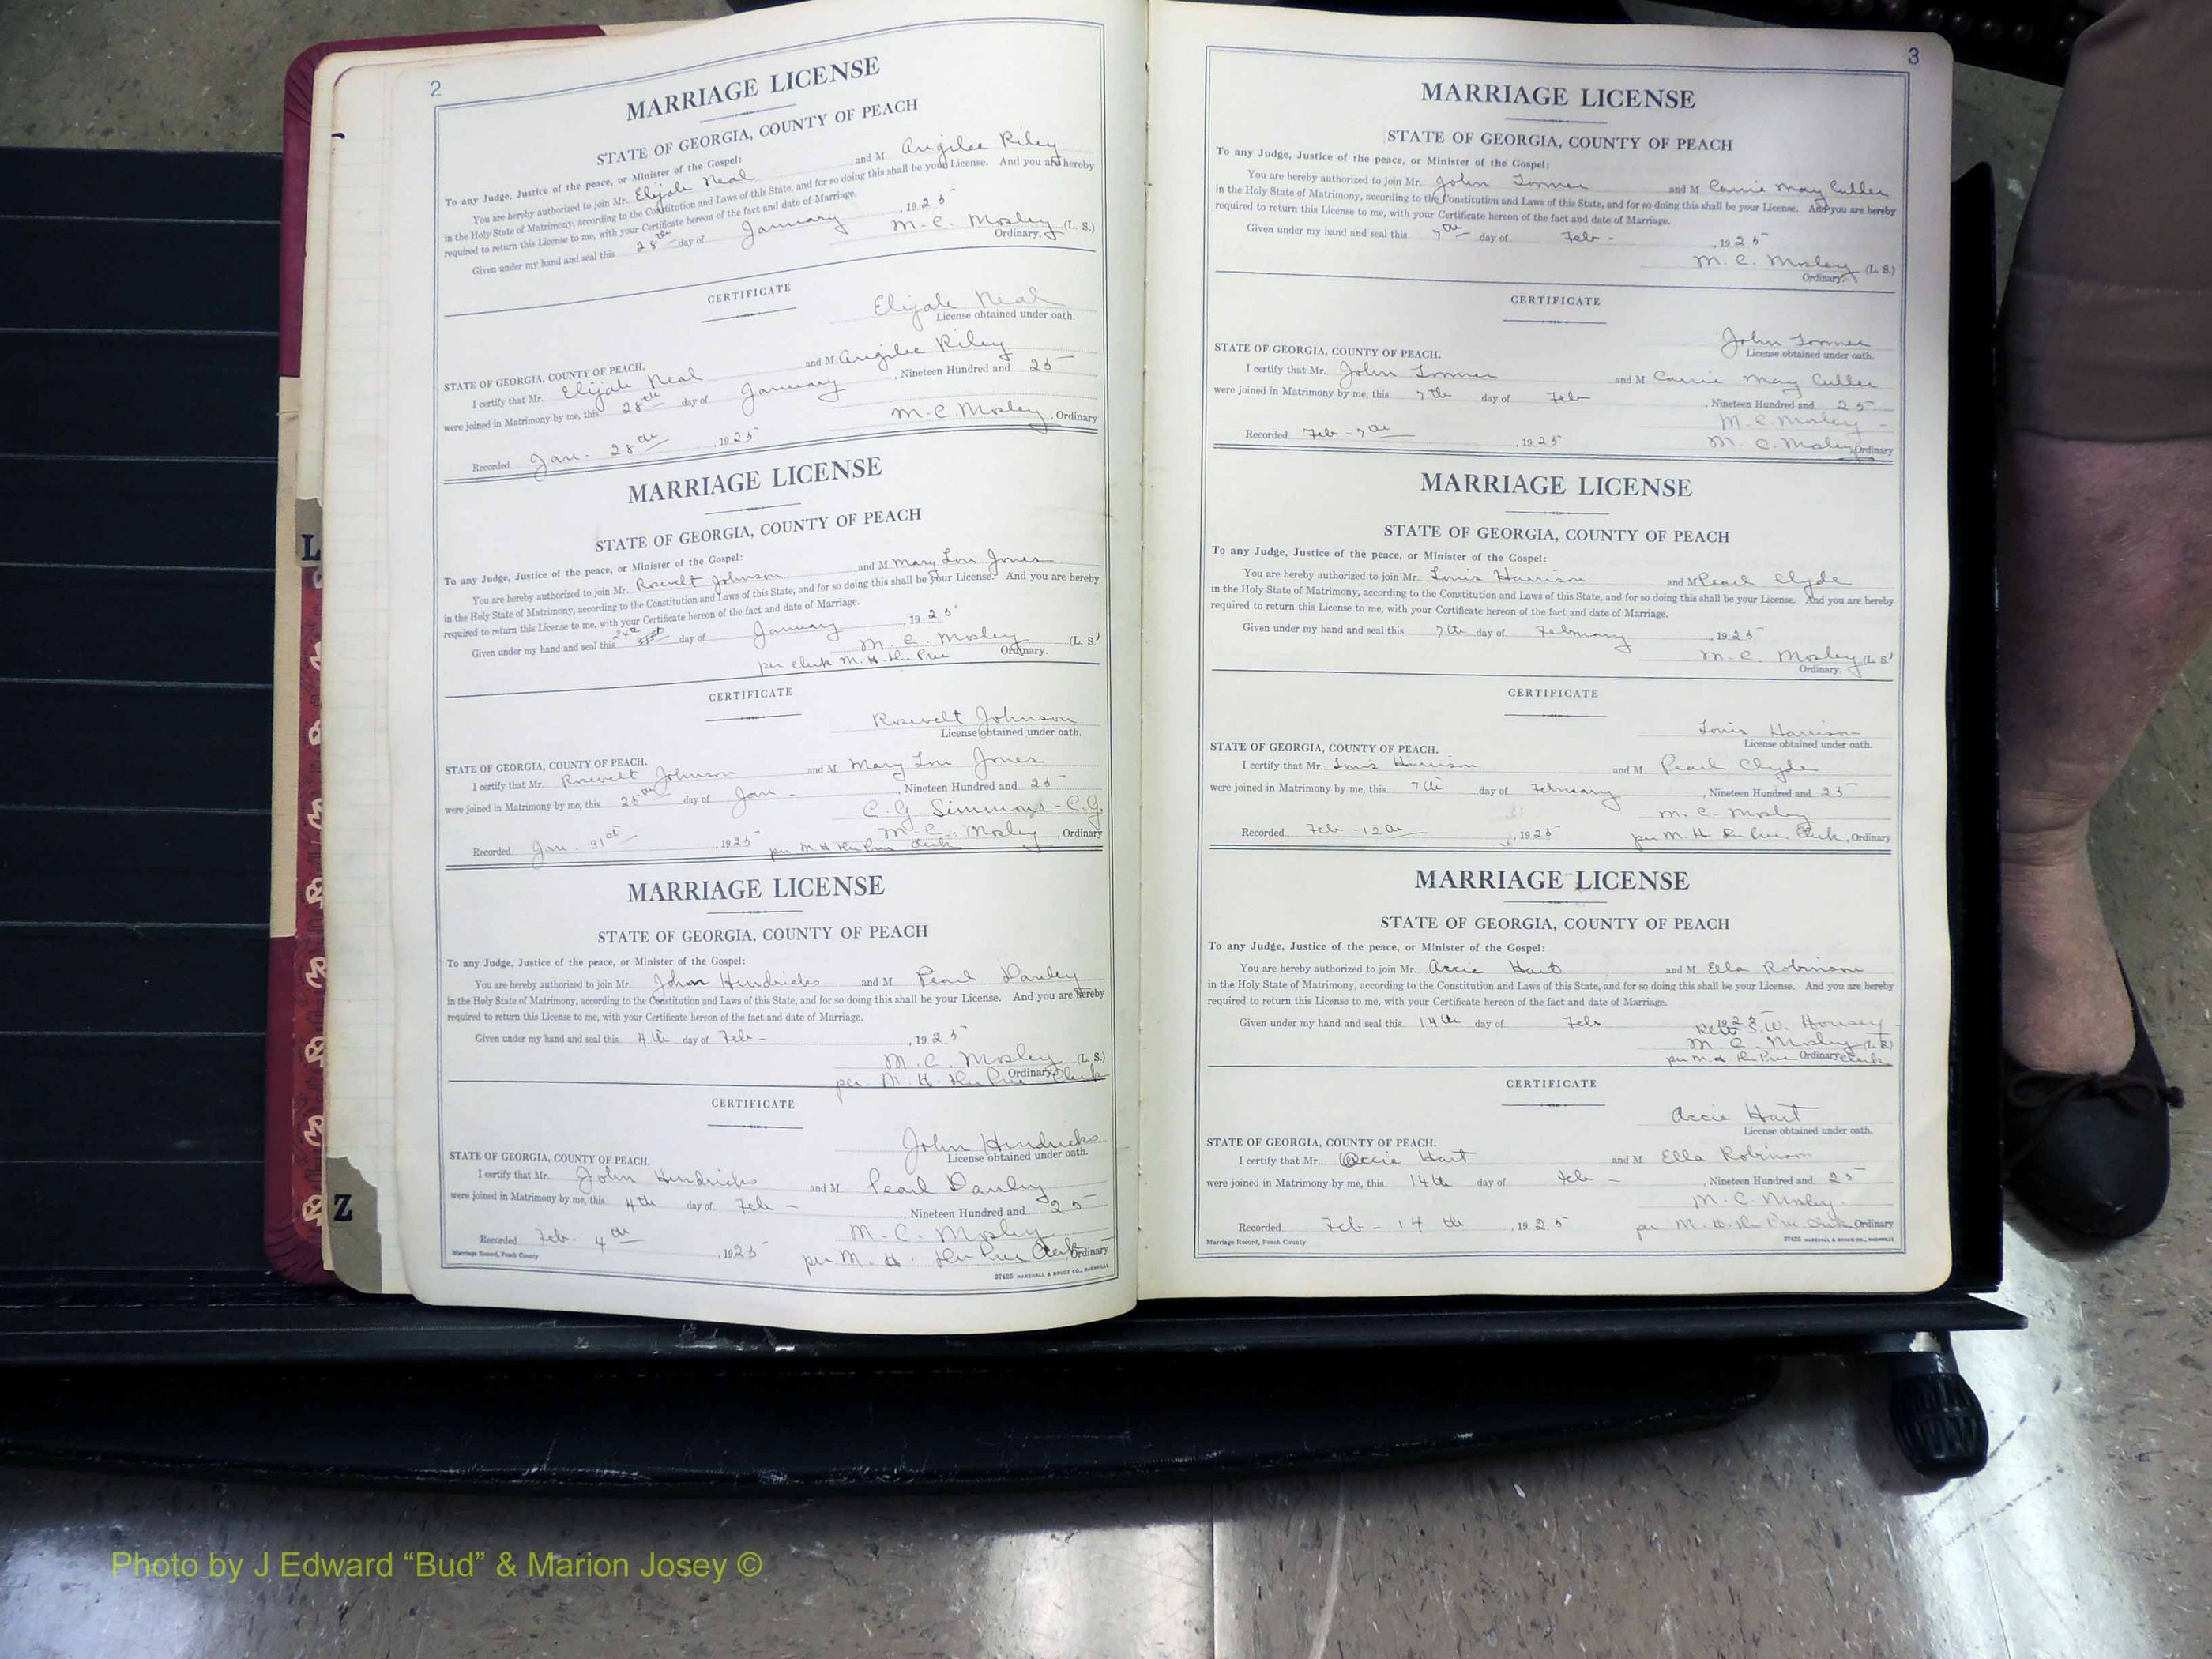 2
MARRIAGE LICENSE
STATE OF GEORGIA, COUNTY OF PEACH
To any Judge, Justice of the peace, or Minister of the Gospel:
You are hereby authorized to join Mr. Elijah Neal and M Angilee Riley
in the Holy State of Matrimony, according to the Constitution and Laws of this State, and for so doing this shall be your License. And you are hereby
required to return this License to me, with your Certificate hereon of the fact and date of Marriage.
Given under my hand and seal this 28th day of January, 1925
M. C. Mosley (L. S.)
Ordinary.
CERTIFICATE
Elijah Neal
License obtained under oath.
STATE OF GEORGIA, COUNTY OF PEACH.
I certify that Mr. Elijah Neal and M Angilee Riley
were joined in Matrimony by me, this 28th day of January, Nineteen Hundred and 25
Recorded Jan. 28th, 1925 M. C. Mosley, Ordinary
MARRIAGE LICENSE
STATE OF GEORGIA, COUNTY OF PEACH
To any Judge, Justice of the peace, or Minister of the Gospel:
You are hereby authorized to join Mr. Rosevelt Johnson and M Mary Lou Jones
in the Holy State of Matrimony, according to the Constitution and Laws of this State, and for so doing this shall be your License. And you are hereby
required to return this License to me, with your Certificate hereon of the fact and date of Marriage.
Given under my hand and seal this 24th day of January, 1925
M. C. Mosley (L. S.)
per clerk M. H. Ordinary.
CERTIFICATE
Rosevelt Johnson
License obtained under oath.
STATE OF GEORGIA, COUNTY OF PEACH.
I certify that Mr. Rosevelt Johnson and M Mary Lou Jones
were joined in Matrimony by me, this 25th day of Jan -, Nineteen Hundred and 25
C. G. Simmons - C.G.
M. C. Mosley, Ordinary
Recorded Jan. 31st, 1925 per M. H. Clerk
MARRIAGE LICENSE
STATE OF GEORGIA, COUNTY OF PEACH
To any Judge, Justice of the peace, or Minister of the Gospel:
You are hereby authorized to join Mr. John Hendricks and M Pearl
in the Holy State of Matrimony, according to the Constitution and Laws of this State, and for so doing this shall be your License. And you are hereby
required to return this License to me, with your Certificate hereon of the fact and date of Marriage.
Given under my hand and seal this 4th day of Feb -, 1925
M. C. Mosley (L. S.)
per M. H. Clerk Ordinary.
CERTIFICATE
John Hendricks
License obtained under oath.
STATE OF GEORGIA, COUNTY OF PEACH.
I certify that Mr. John Hendricks and M Pearl
were joined in Matrimony by me, this 4th day of Feb -, Nineteen Hundred and 25
M. C. Mosley
Recorded Feb. 4th, 1925 per M. H. Clerk, Ordinary
Marriage Record, Peach County
37425 MARSHALL & BRUCE CO., NASHVILLE
3
MARRIAGE LICENSE
STATE OF GEORGIA, COUNTY OF PEACH
To any Judge, Justice of the peace, or Minister of the Gospel:
You are hereby authorized to join Mr. John and M Carrie May Culler
in the Holy State of Matrimony, according to the Constitution and Laws of this State, and for so doing this shall be your License. And you are hereby
required to return this License to me, with your Certificate hereon of the fact and date of Marriage.
Given under my hand and seal this 7th day of Feb -, 1925
M. C. Mosley (L. S.)
Ordinary.
CERTIFICATE
John
License obtained under oath.
STATE OF GEORGIA, COUNTY OF PEACH.
I certify that Mr. John and M Carrie May Culler
were joined in Matrimony by me, this 7th day of Feb, Nineteen Hundred and 25
M. C. Mosley -
Recorded Feb - 7th, 1925 M. C. Mosley, Ordinary
MARRIAGE LICENSE
STATE OF GEORGIA, COUNTY OF PEACH
To any Judge, Justice of the peace, or Minister of the Gospel:
You are hereby authorized to join Mr. Louis Harrison and M Pearl Clyde
in the Holy State of Matrimony, according to the Constitution and Laws of this State, and for so doing this shall be your License. And you are hereby
required to return this License to me, with your Certificate hereon of the fact and date of Marriage.
Given under my hand and seal this 7th day of February, 1925
M. C. Mosley (L. S.)
Ordinary.
CERTIFICATE
Louis Harrison
License obtained under oath.
STATE OF GEORGIA, COUNTY OF PEACH.
I certify that Mr. Louis Harrison and M Pearl Clyde
were joined in Matrimony by me, this 7th day of February, Nineteen Hundred and 25
M. C. Mosley
Recorded Feb - 12th, 1925 per M. H. Clerk, Ordinary
MARRIAGE LICENSE
STATE OF GEORGIA, COUNTY OF PEACH
To any Judge, Justice of the peace, or Minister of the Gospel:
You are hereby authorized to join Mr. Accie Hart and M Ella Robinson
in the Holy State of Matrimony, according to the Constitution and Laws of this State, and for so doing this shall be your License. And you are hereby
required to return this License to me, with your Certificate hereon of the fact and date of Marriage.
Given under my hand and seal this 14th day of Feb, 1925
S. W. Housey
M. C. Mosley (L. S.)
per M. H. Ordinary Clerk
CERTIFICATE
Accie Hart
License obtained under oath.
STATE OF GEORGIA, COUNTY OF PEACH.
I certify that Mr. Accie Hart and M Ella Robinson
were joined in Matrimony by me, this 14th day of Feb -, Nineteen Hundred and 25
M. C. Mosley
Recorded Feb - 14th, 1925 per M. H. Clerk, Ordinary
Marriage Record, Peach County
37425 MARSHALL & BRUCE CO., NASHVILLE
L
Z
Photo by J Edward “Bud” & Marion Josey ©